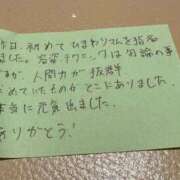 昨日、初めてひまわりさんを指名
しました。容姿テクニックは勿論の事
ですが、人間力が抜群
求めていたものがとこにありました。
本当に元気出ました。
ありがとう!